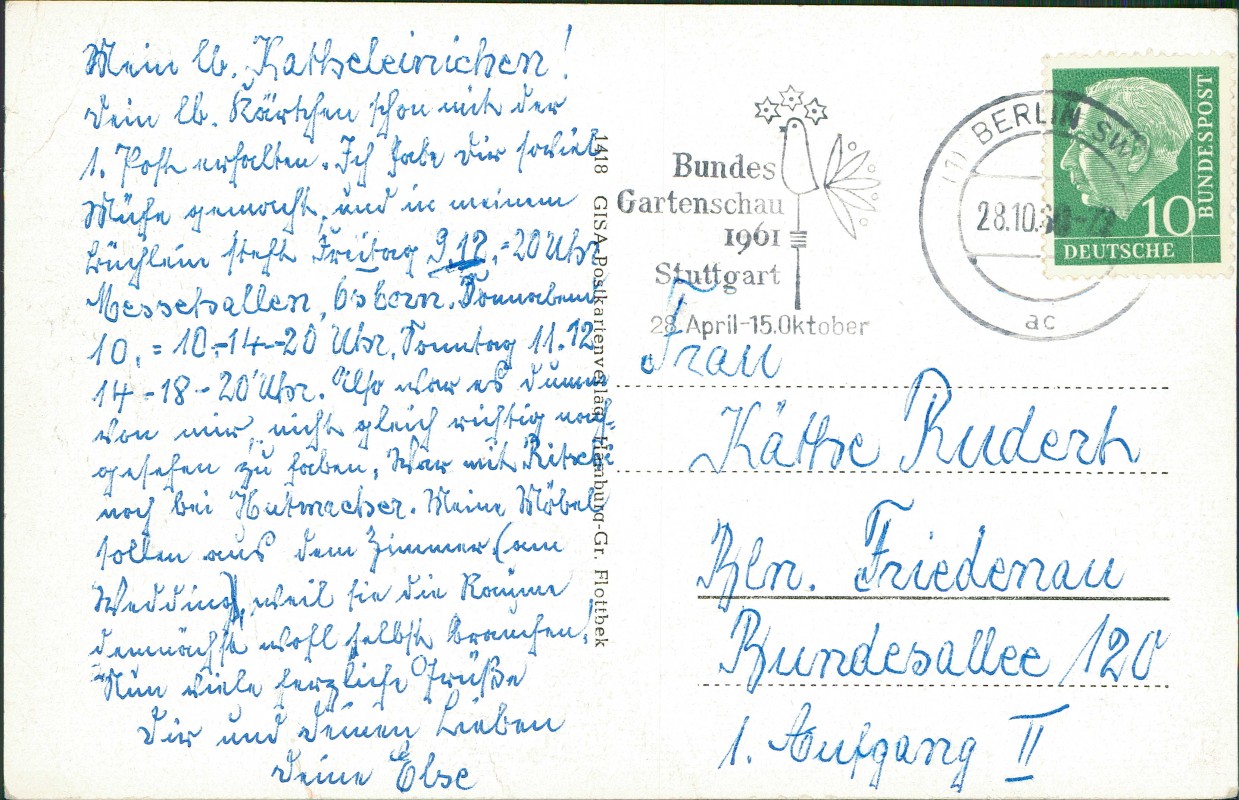 Mein lb. Katheleinichen!
Dein lb. Kärtchen schon mit der
1. Post erhalten. Ich habe Dir soviel
Mühe gemacht, und in meinem
Büchlein steht Freitag 9.12. = 20 Uhr
Messehallen, Sonnabend
10. = 10-14-20 Uhr. Sonntag 11.12.
14-18-20 Uhr. Also war es dumm
von mir, nicht gleich richtig nach-
gesehen zu haben. War mit
noch bei Hutmacher. Meine Möbel
sollen aus dem Zimmer (am
Wedding), weil sie die Räume
demnächst wohl selbst brauchen!
Nun viele herzliche Grüße
Dir und Deinen Lieben
Deine Else
1418 GISA-Postkartenverlag, Hamburg-Gr. Flottbek
Bundes
Gartenschau
1961
Stuttgart
28. April-15. Oktober
(1) BERLIN SW
28.10.
ac
10
DEUTSCHE
BUNDESPOST
Frau
Käthe Rudert
Bln. Friedenau
Bundesallee 120
1. Aufgang II